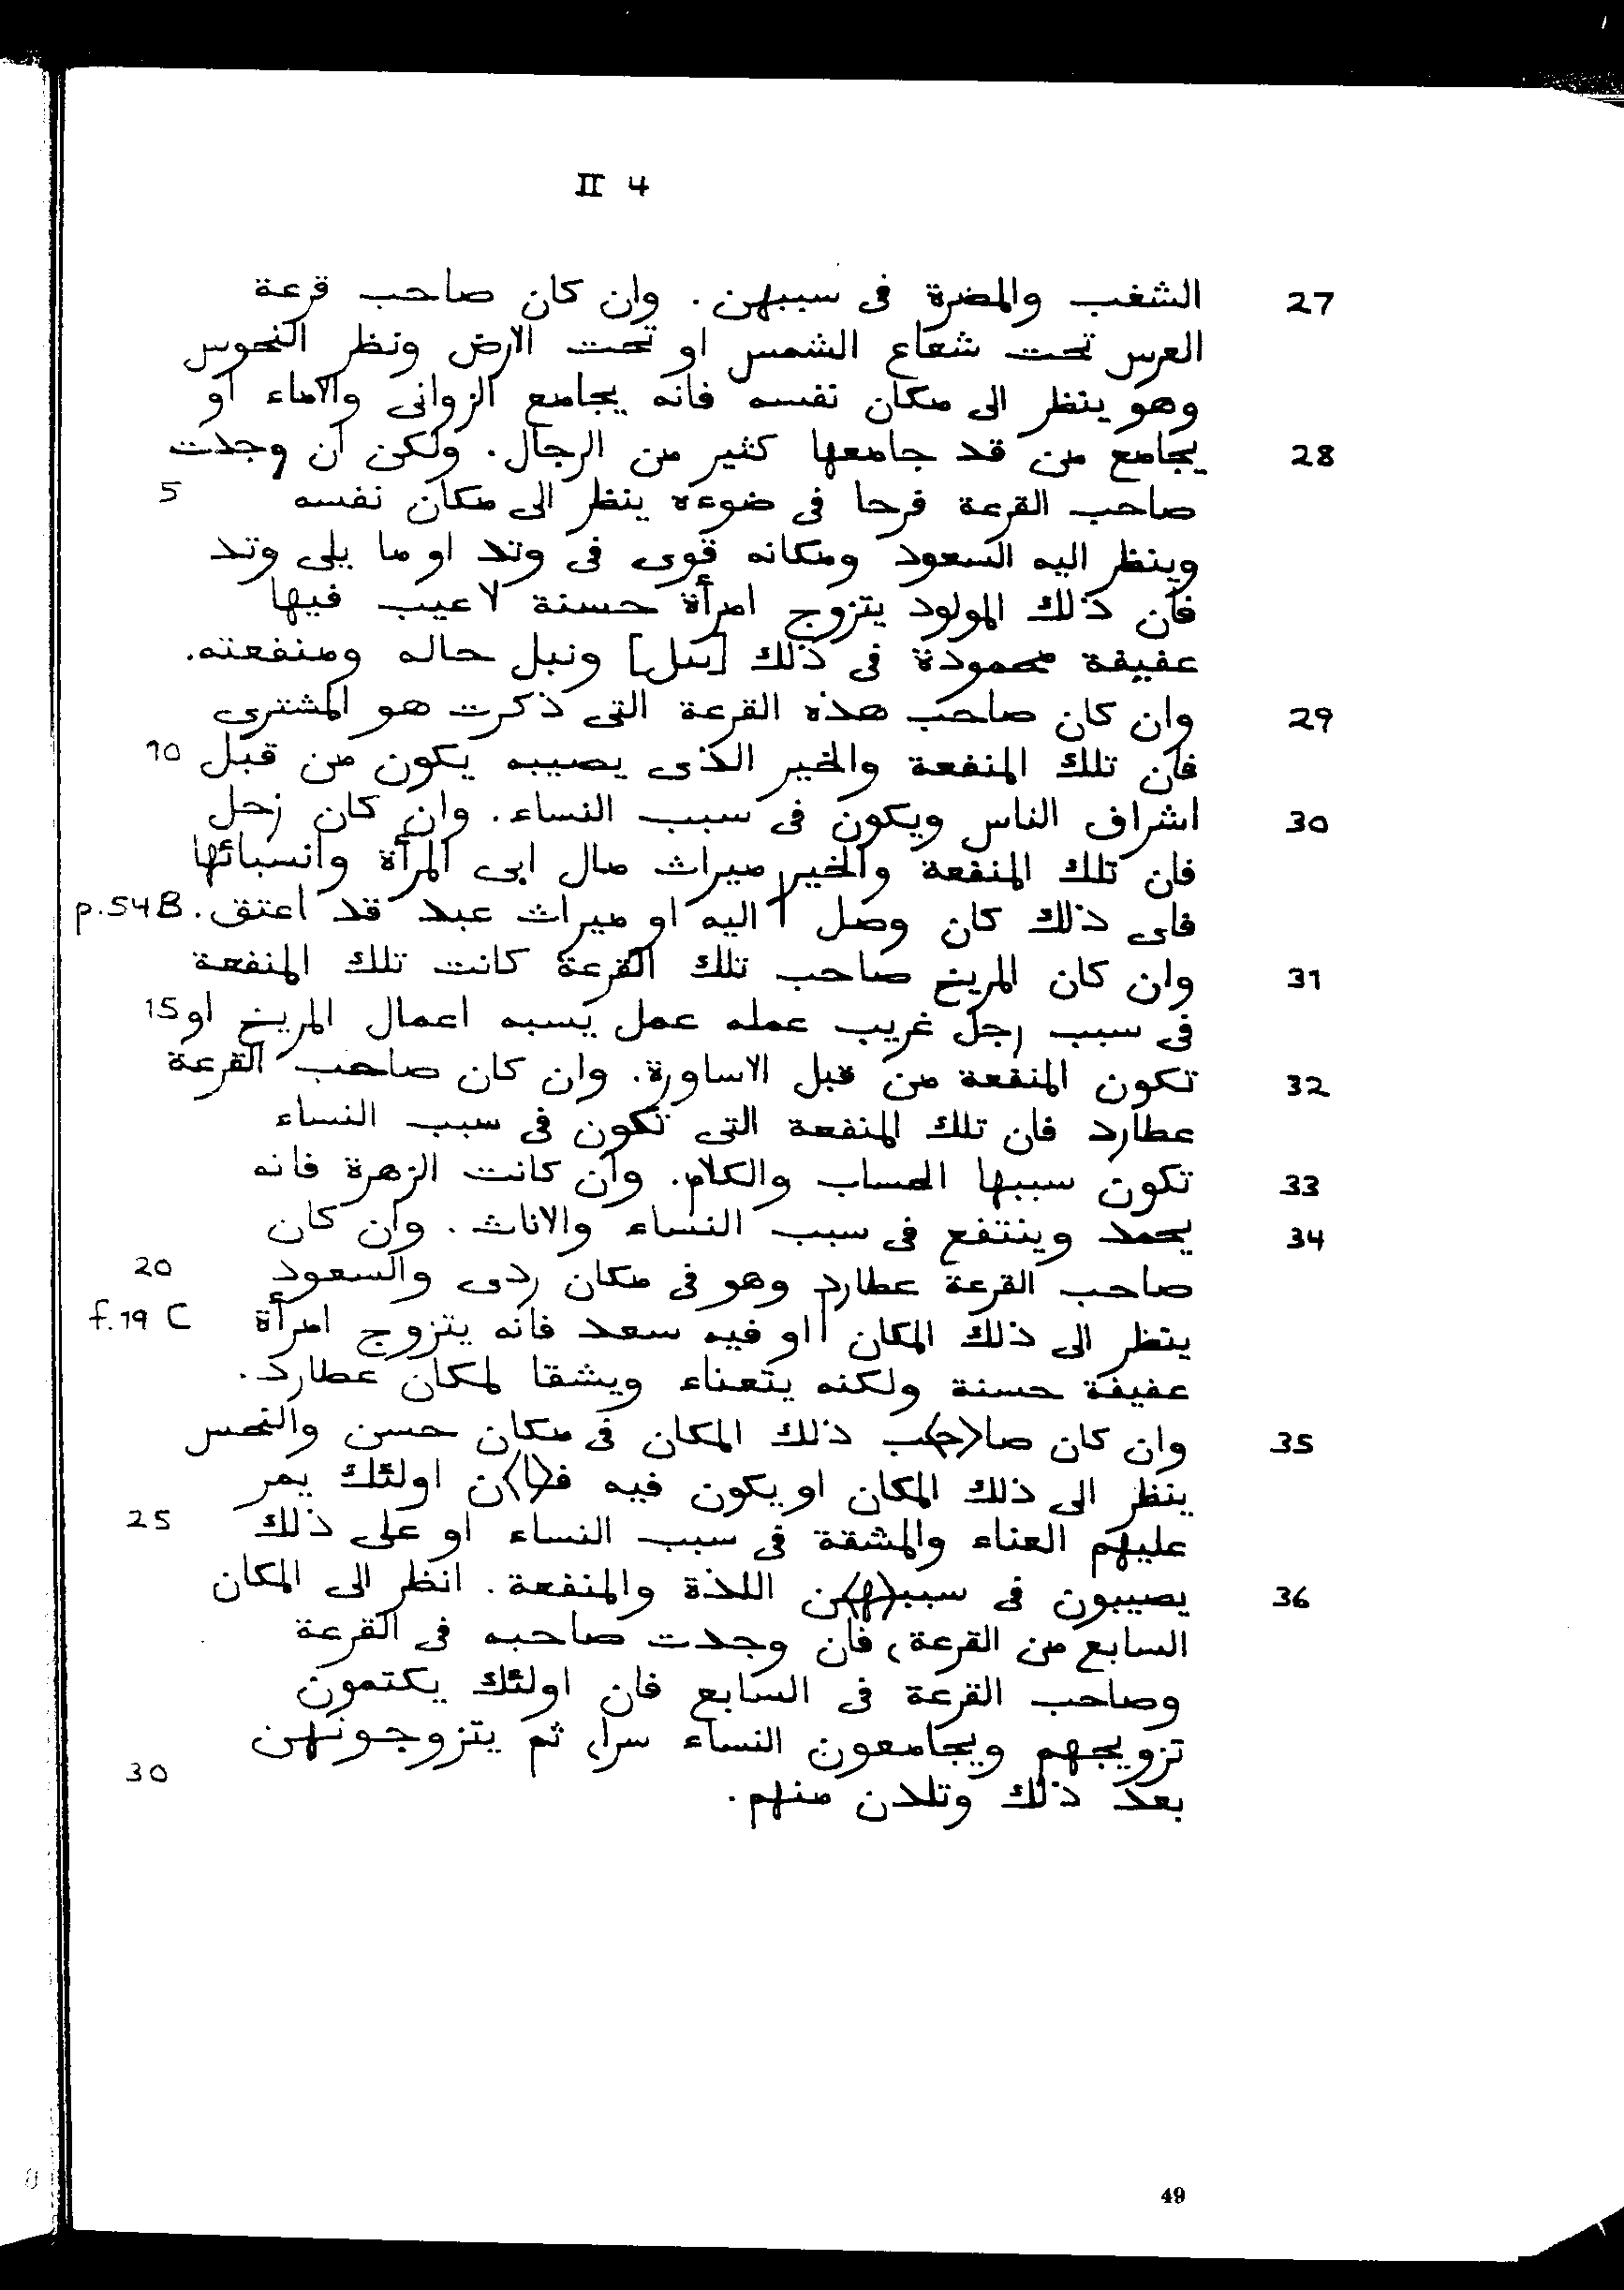 II 4
27 الشغب والمضرة فى سببهن . وان كان صاحب قرعة
العرس تحت شعاع الشمس او تحت الارض ونظر النحوس
وهو ينظر الى مكان نفسه فانه يجامع الزوانى والاماء او
28 يجامع من قد جامعها كثير من الرجال. ولكن ان وجدت
صاحب القرعة فرحا فى ضوءه ينظر الى مكان نفسه 5
وينظر اليه السعود ومكانه قوى فى وتد او ما يلى وتد
فان ذلك المولود يتزوج امرأة حسنة لا عيب فيها
عفيفة محمودة فى ذلك [سل] ونبل حاله ومنفعته.
29 وان كان صاحب هذه القرعة التى ذكرت هو المشترى
فان تلك المنفعة والخير الذى يصيبه يكون من قبل 10
30 اشراف الناس ويكون فى سبب النساء. وان كان زحل
فان تلك المنفعة والخير ميراث مال ابى المرأة وانسبائها
فاى ذلك كان وصل | اليه او ميراث عبد قد اعتق. p.54B
31 وان كان المريخ صاحب تلك القرعة كانت تلك المنفعة
فى سبب رجل غريب عمله عمل يسبه اعمال المريخ او 15
32 تكون المنفعة من قبل الاساورة. وان كان صاحب القرعة
عطارد فان تلك المنفعة التى تكون فى سبب النساء
33 تكون سببها الحساب والكلام. وان كانت الزهرة فانه
34 يحمد وينتفع فى سبب النساء والاناث . وان كان
صاحب القرعة عطارد وهو فى مكان ردى والسعود 20
ينظر الى ذلك المكان | او فيه سعد فانه يتزوج امرأة f.19 C
عفيفة حسنة ولكنه يتعناء ويشقا لمكان عطارد.
35 وان كان صا<ح>ب ذلك المكان فى مكان حسن والنحس
ينظر الى ذلك المكان او يكون فيه ف<ا>ن اولئك يمر
عليهم العناء والمشقة فى سبب النساء او على ذلك 25
36 يصيبون فى سبب<ه>ن اللذة والمنفعة. انظر الى المكان
السابع من القرعة، فان وجدت صاحبه فى القرعة
وصاحب القرعة فى السابع فان اولئك يكتمون
تزويجهم ويجامعون النساء سرا، ثم يتزوجونهن
بعد ذلك وتلدن منهم. 30
49